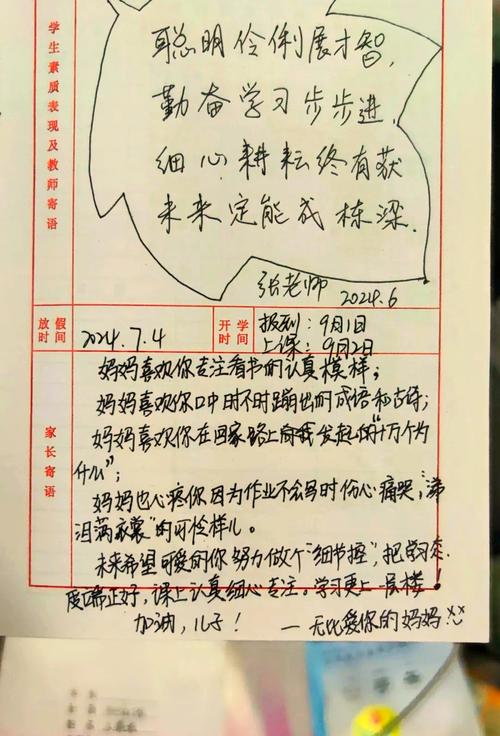 学生素质表现及教师寄语
聪明伶俐展才智,
勤奋学习步步进,
细心耕耘终有获
未来定能成栋梁.
张老师 2024.6
放假时间
2024.7.4
开学时间
报到:9月1日
上课:9月2日
家长寄语
妈妈喜欢你专注看书的认真模样;
妈妈喜欢你口中时不时蹦出的成语和古诗;
妈妈喜欢你在回家路上向我发起的“十万个为
什么”;
妈妈也心疼你因为作业不会写时伤心痛哭,“涕
泪满衣裳”的可怜样儿。
未来希望可爱的你努力做个“细节控”,把学习态
度端正好,课上认真细心专注。学习更上一层楼!
加油,儿子! —无比爱你的妈妈